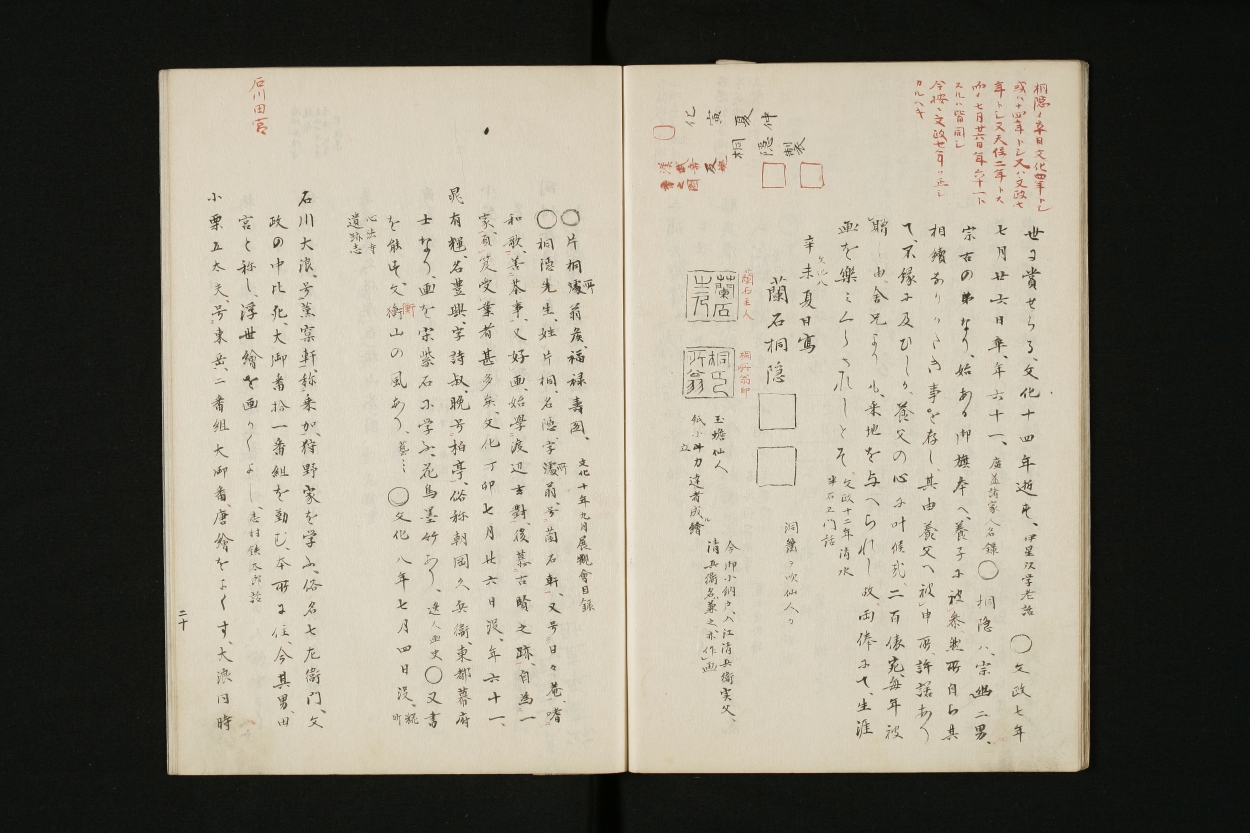 桐隠ノ卒日文化四年トシ
或ハ十四年トシ又ハ文政七
年トシ又天保二年トス
而シ七月廿六日年六十一ト
スルハ皆同シ
今按ニ文政七年ハ正シ
カルヘキ
仲夏寅化
桐隠製
世に賞せらる、文化十四年逝す、伊星次学老話 〇文政七年
七月廿六日卒、年六十一、廣益諸家人名録〇桐隠ハ宗幽二男、
宗古の弟なり、始ある御旗本へ、養子に被参無所自ら其
相續なりかたき事を存し、其由養父へ被申所、許諾あり
て、不縁に及ひしか、養父の心に叶候哉、二百俵宛、毎年被
贈し由、舎兄よりも、采地を与へられし故、両俸にて、生涯
画を樂ミくらされしとそ、文政十二年清水
半右エ門話
文化八
辛未夏日寫
蘭石桐隠
蘭石主人
蘭石主人
桐所翁印
桐所翁
洞簫ヲ吹仙人ヲ
玉蟾仙人
紙小立力達者成繪
今御小納戸、入江清兵衛実父、
清兵衛名兼之、亦作画
〇片桐所翁矦、福禄壽圖、文化十年九月展觀會目録
〇桐隠先生、姓片桐、名隠、字所翁、号蘭石軒、又号日々菴、嗜
和歌、善茶事、又好画、始學渡辺玄對、後慕古賢之跡、自為一
家、頁笈受業者甚多矣、文化丁卯七月廿六日没、年六十一、
晁有輝、名豊興、字詩叔、晩号柏亭、俗称朝岡久兵衛、東都幕府
士なり、画を宋紫石に学ふ、花鳥墨竹あり、逸人画史〇又書
を能す、文衡山の風あり、〇文化八年七月四日没、糀町
心法寺
遺跡志
石川田宮
石川大浪、号薫窠軒、称乗加、狩野家を学ふ、俗名七左衛門、文
政の中比死、大御番拾一番組を勤む、本所に住、今其男、田
宮と称し、浮世繪を画かくよし、志村鉄太郎話
小栗五太夫、号東岳、二番組大御番、唐繪をよくす、大浪同時
二十